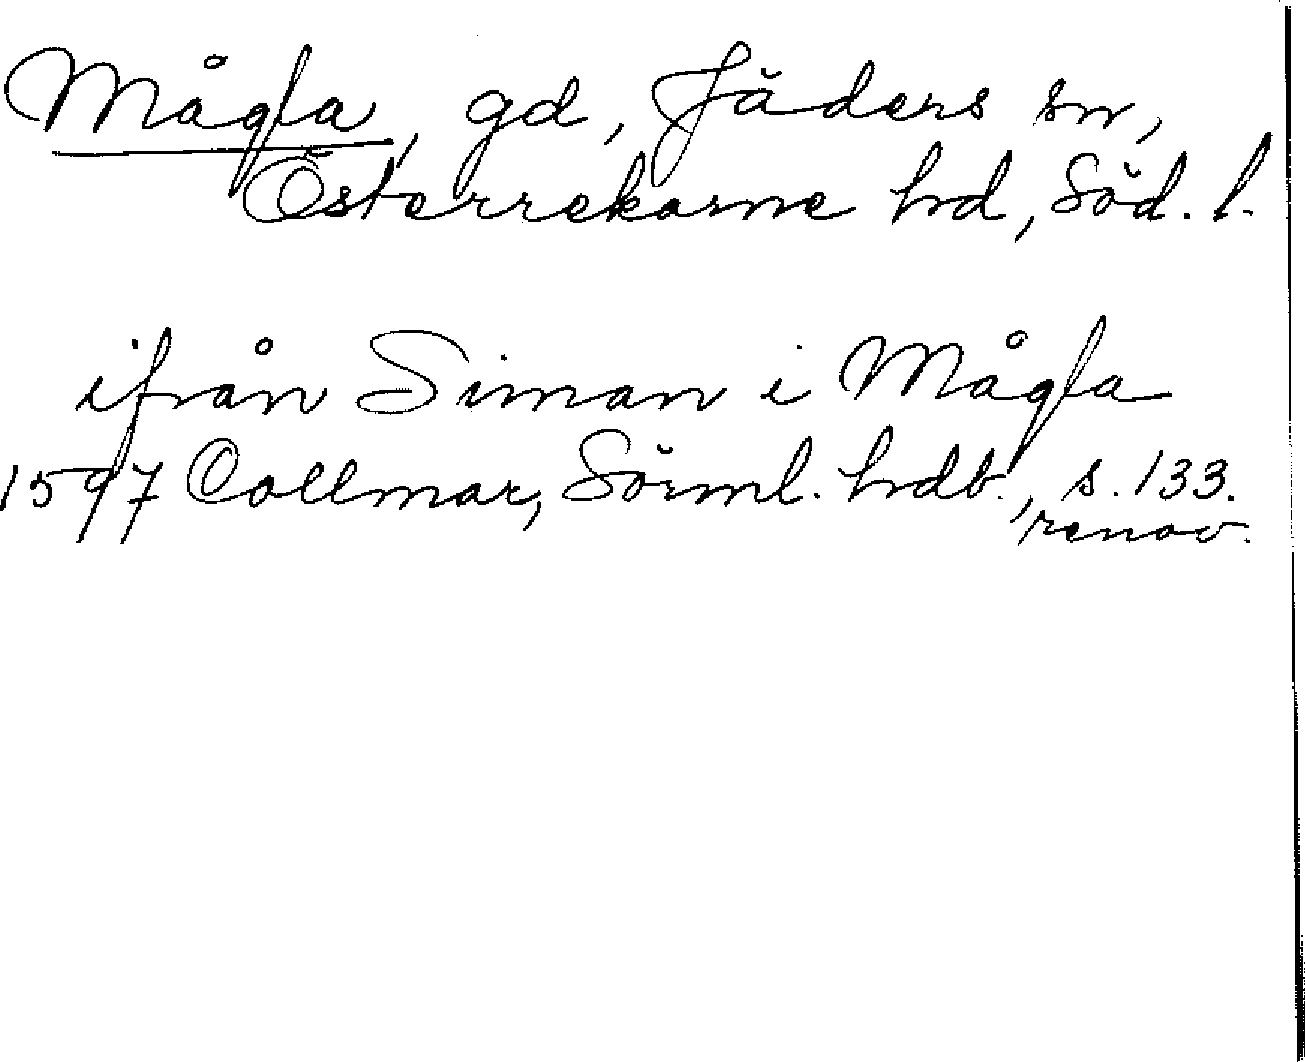 Mågla, gd, Jäders sn,
Österrekarne hd, Söd. l.
ifrån Siman i Mågla
1597 Collmar, Sörml. hdb., s. 133.
renov.